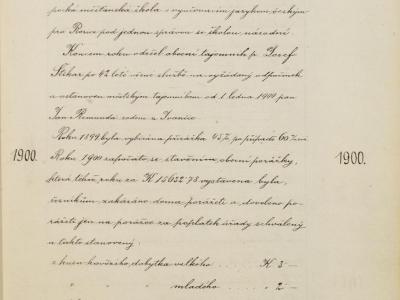 pecká měšťanská škola s vyučovacím jazykem českým
pro Rorce pod jednou správou se školou národní.
Koncem roku odešel obecní tajemník p. Josef
Stehar po 42 leté věrné službě na vyžádaný odpočinek
a ustanoven městským tajemníkem od 1 ledna 1900 pan
Jan Remunda rodem z Ivančic
Roku 1899 byla vybírána přirážka 45%, po případě 60%ní
1900.
Roku 1900 započato se stavěním obecní porážky,
1900.
která téhož roku za K 15622·78 vystavena byla,
řezníkům zakázáno doma porážeti a dovoleno po-
rážeti jen na porážce za poplatek úřady schválený
a takto stanovený:
z kusu hovězího dobytka velkého . . . K 3 —
" " " mladého . . . " 2 —